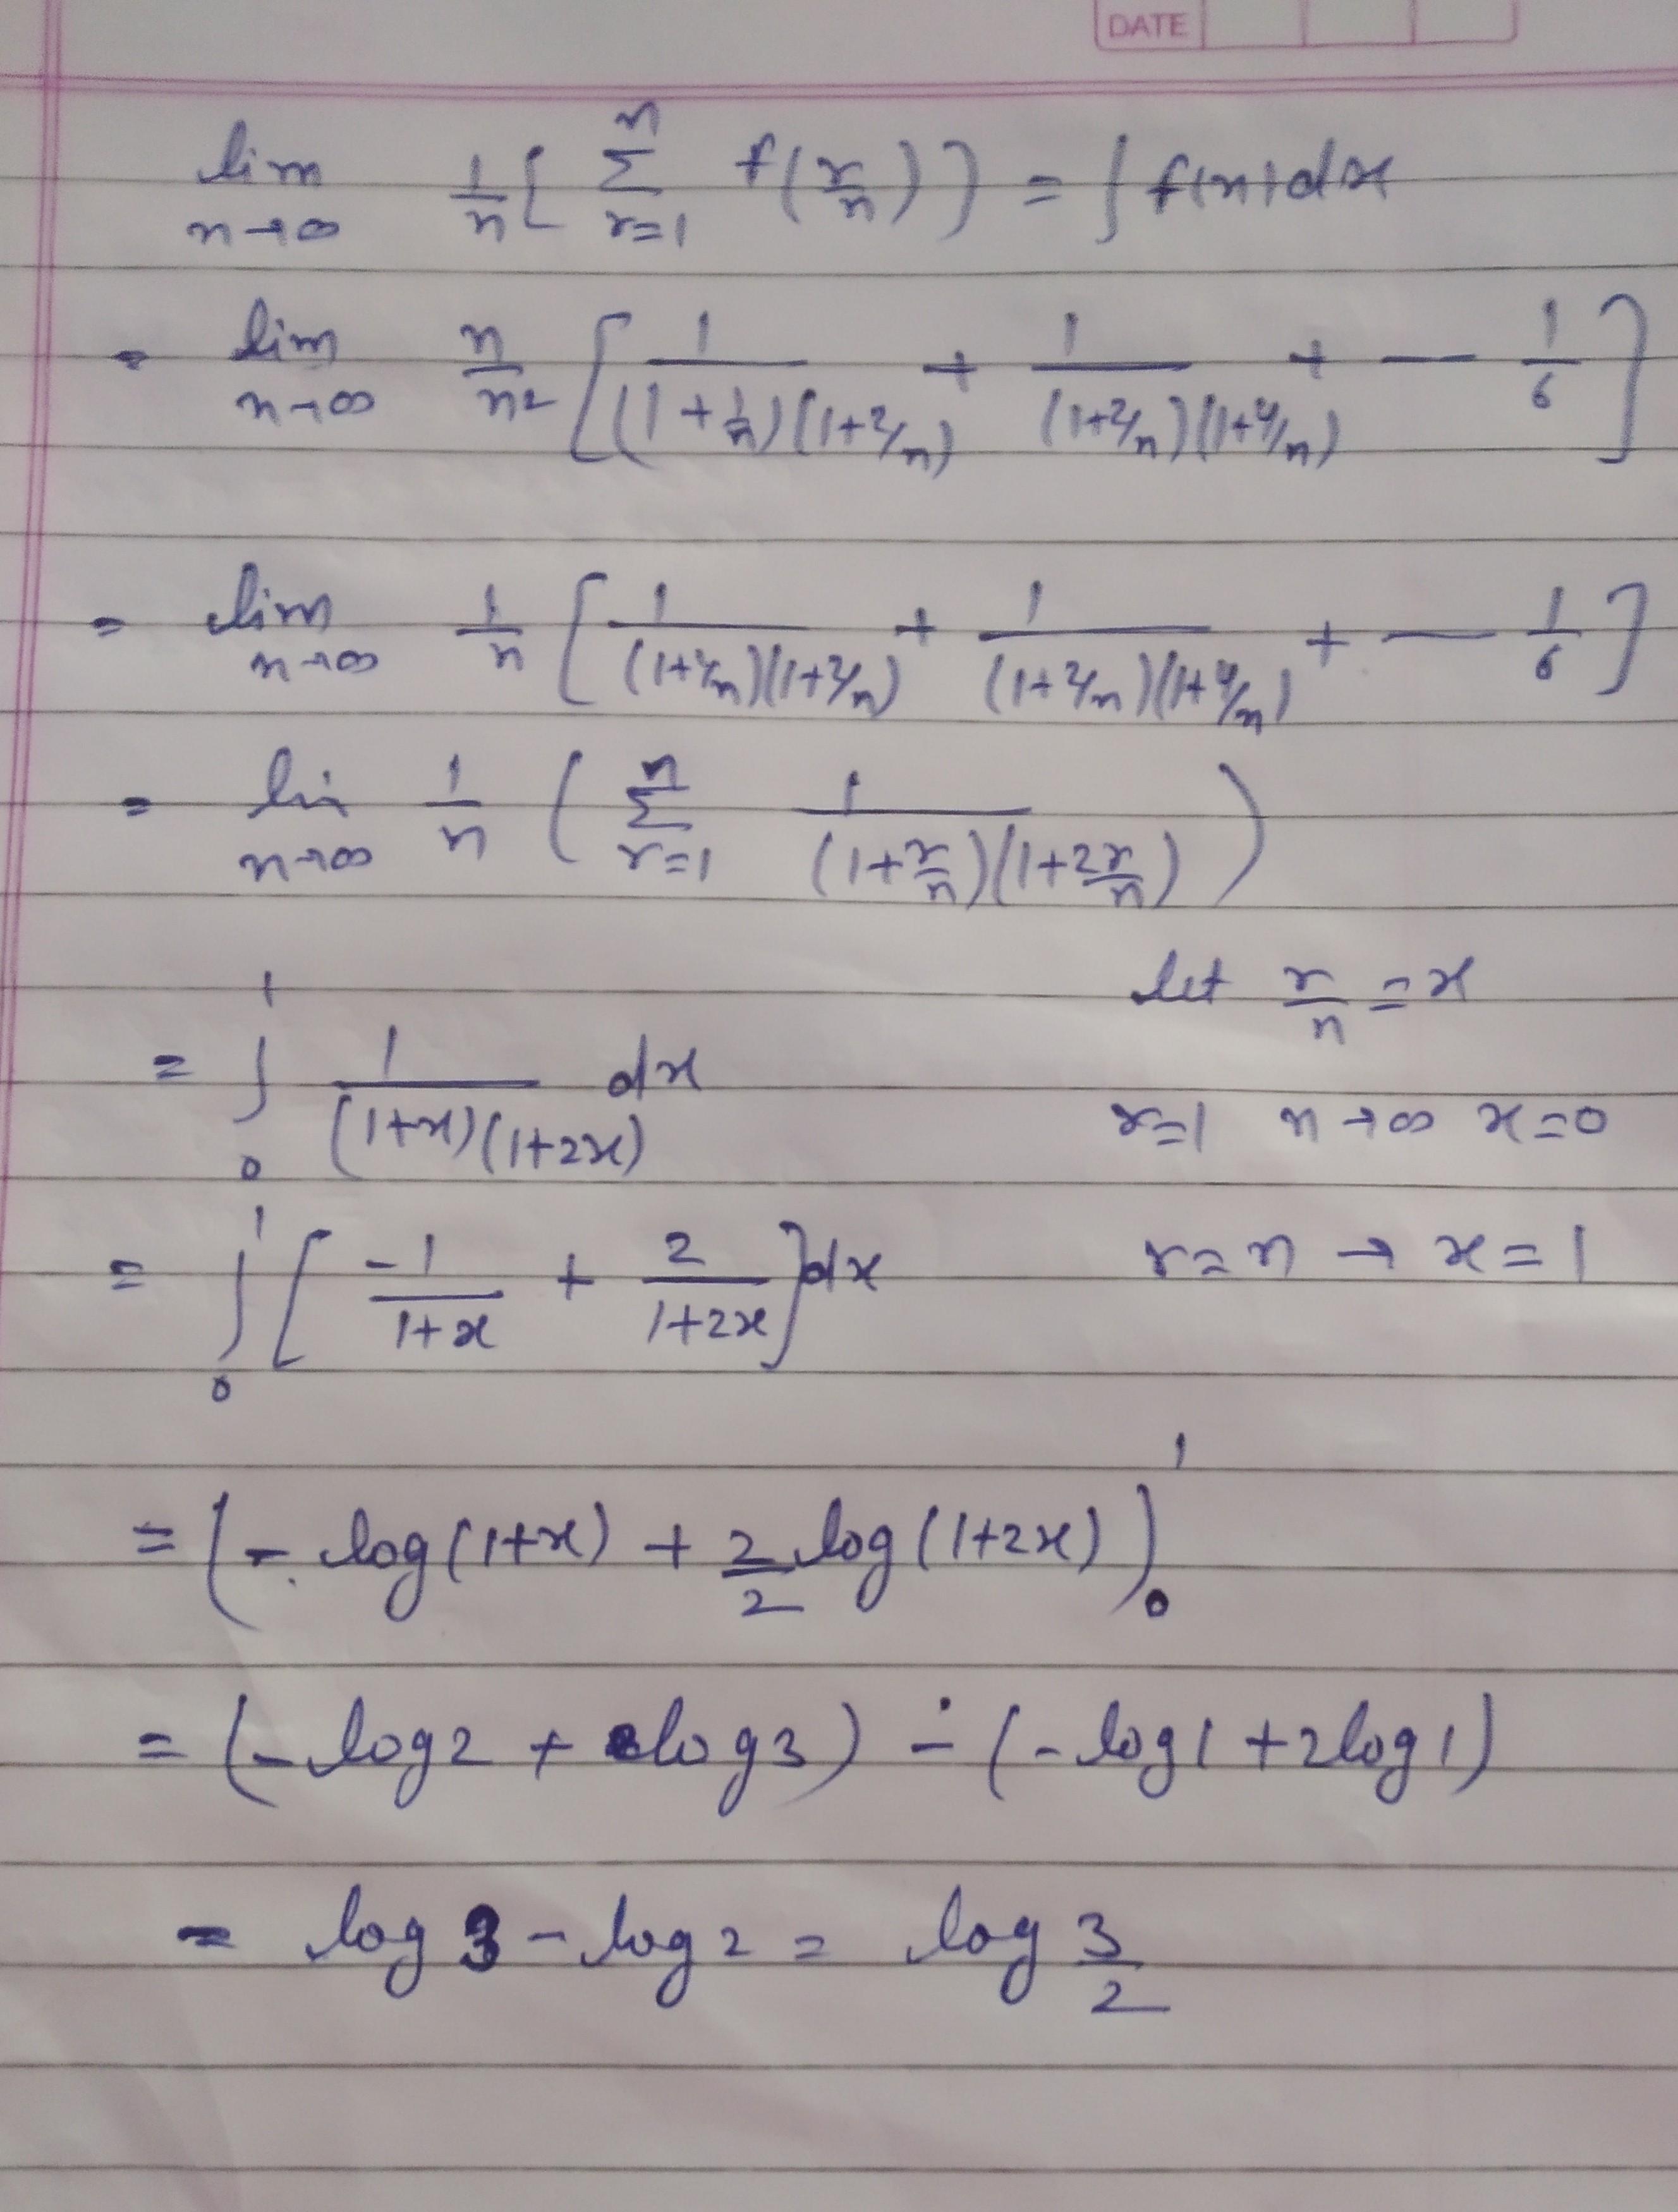 DATE
lim n→∞ 1/n [ n Σ r=1 f(r/n) ] = ∫ f(x) dx
= lim n→∞ n/n2 [ 1/(1+1/n)(1+2/n) + 1/(1+2/n)(1+4/n) + — 1/6 ]
= lim n→∞ 1/n [ 1/(1+1/n)(1+2/n) + 1/(1+2/n)(1+4/n) + — 1/6 ]
= lim n→∞ 1/n ( n Σ r=1 1/(1+r/n)(1+2r/n) )
let r/n = x
= ∫ 0 1 1/(1+x)(1+2x) dx r=1 n→∞ x=0
= ∫ 0 1 [ -1/1+x + 2/1+2x ] dx r=n → x=1
= ( - log(1+x) + 2/2 log(1+2x) ) 0 1
= (- log2 + log3) - (- log1 + 2log1)
= log 3 - log 2 = log 3/2